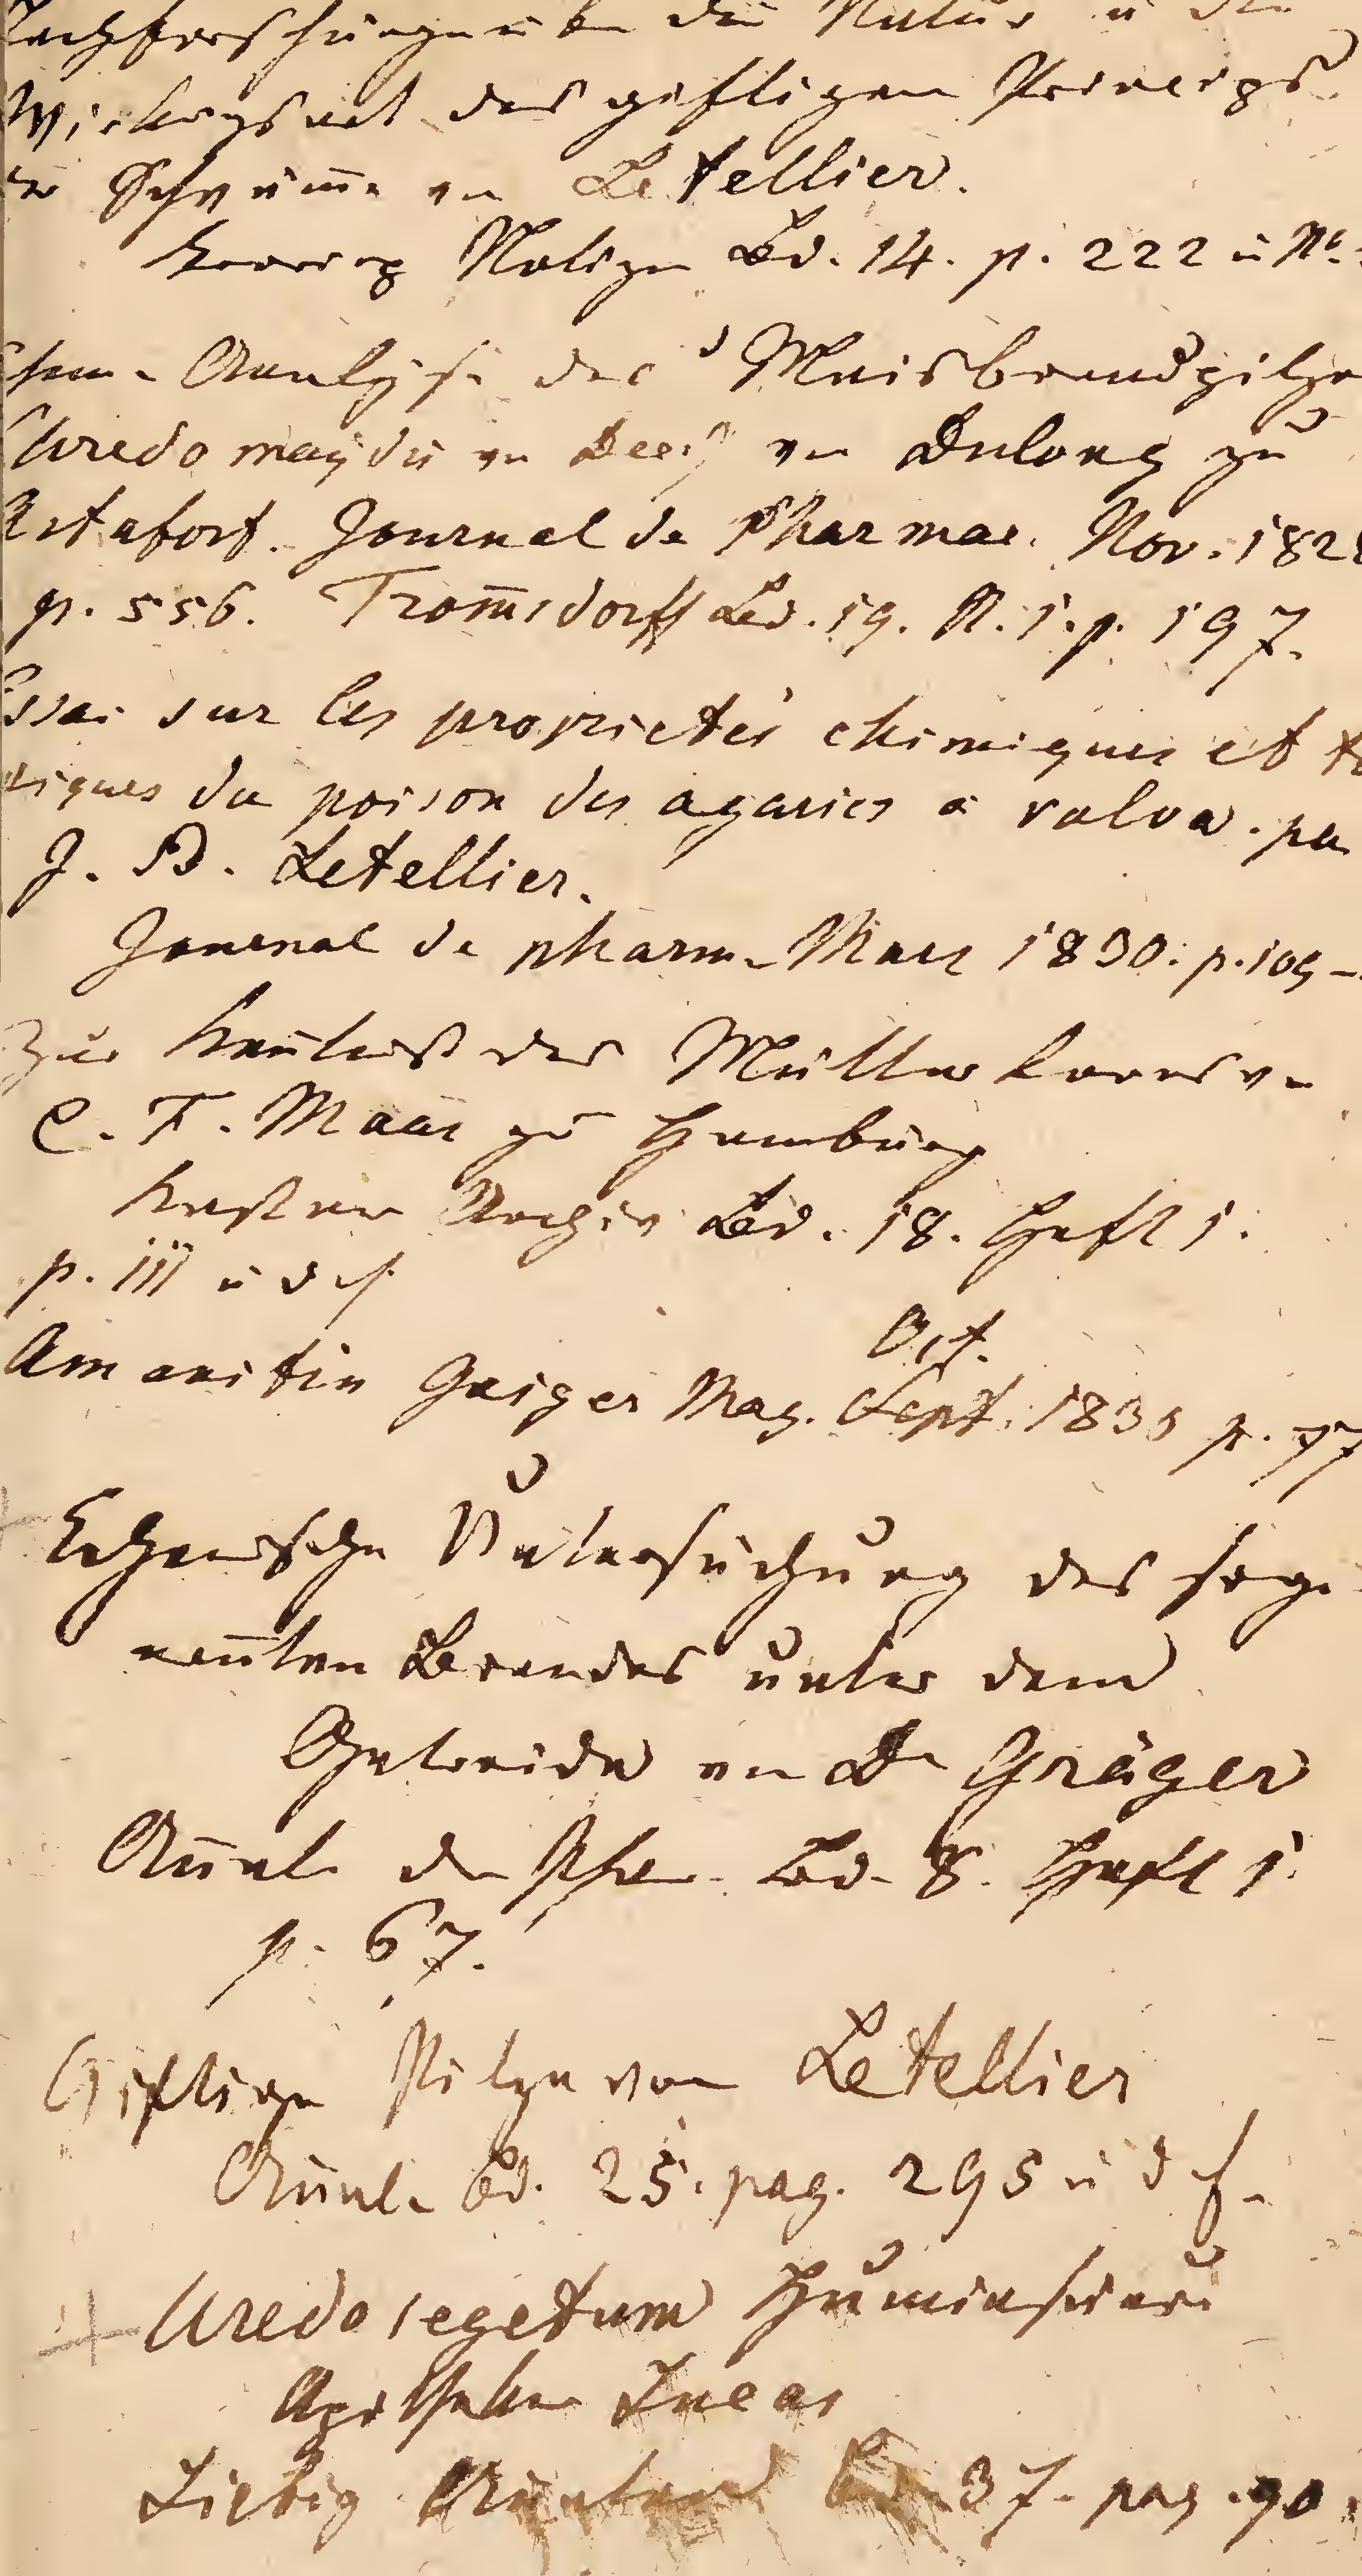 Nachforschungen über die Natur u die
Wirkungsart des giftigen Princips
der Schwämme von Letellier.
Notizen Bd. 14. p. 222 u No.
Chem. Analyse des Maisbrandpilzes
Uredo maydis von Dec. von Dulong zu
Astafort. Journal de Pharmac. Nov. 182
p. 556. Trom̅sdorff Bd. 19. St. 1. p. 197.
Essai sur les proprietés chimiques et to
xiques du poison des agarics a volva. par
J. B. Letellier.
Journal de pharm. Mars 1830. p. 109 –
Zur Ken̅tniß des Mutterkorns von
C. F. Maas zu Hamburg
Kastner Archiv Bd. 18. Heft 1.
p. 111 u d f.
Oct.
Amanitin Geiger Mag. Sept. 183 p. 77
Chemische Untersuchung des soge
nan̅ten Brandes unter dem
Getreide von Dr Gräger
An̅al. der Phar. Bd. 8. Heft 1.
p. 67.
Giftige Pilze von Letellier
An̅al. Bd. 25. pag. 295 u d f.
Uredo segetum Huminsäure
Apotheker Lucas
Liebig An̅alen Bd. 37. pag. 90.